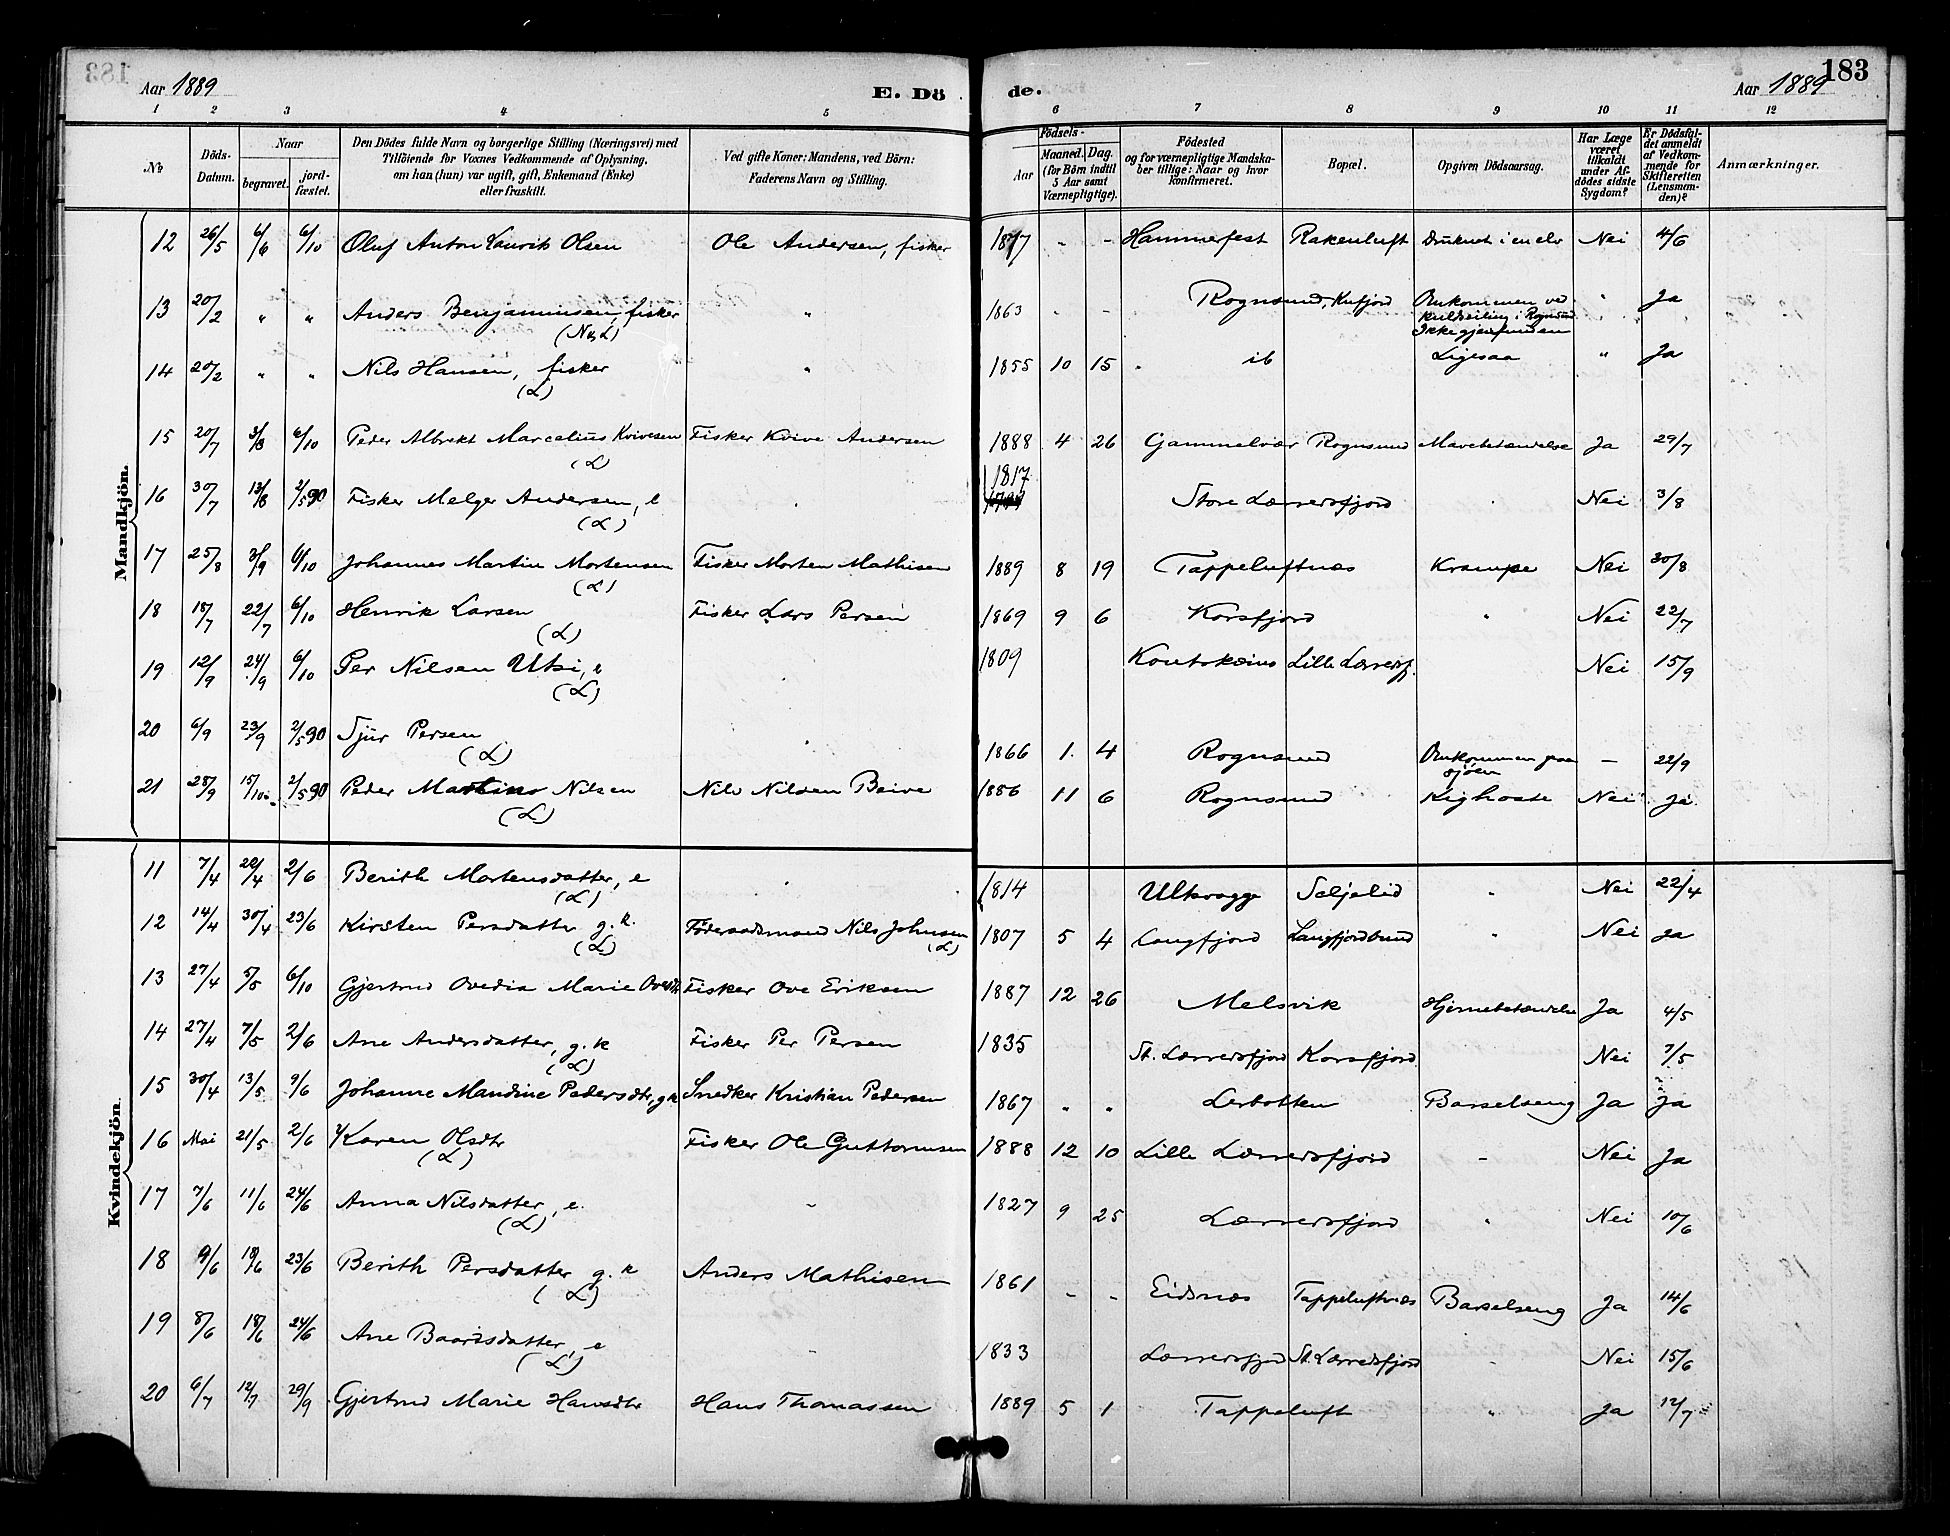 183
Aar 1889
E. Dö
de.
Aar 1889
1 2 3 4 5 6 7 8 9 10 11 12
No. Döds-Datum. Naar begravet. jordfæstet. Den Dödes fulde Navn og borgerlige Stilling (Næringsvei) med Tilföiende for Voxnes Vedkommende af Oplysning, om han (hun) var ugift, gift, Enkemand (Enke) eller fraskilt. Ved gifte Koner: Mandens, ved Börn: Faderens Navn og Stilling. Födsels- Aar Maaned. Dag. (for Börn indtil 5 Aar samt Værnepligtige). Födested og for værnepligtige Mandskaber tillige: Naar og hvor konfirmeret. Bopæl. Opgiven Dödsaarsag. Har Læge været tilkaldt under Afdödes sidste Sygdom? Er Dödsfaldet anmeldt af Vedkommende for Skifteretten (Lensmanden)? Anmærkninger.
Mandkjön.
12 26/5 6/6 6/10 Oluf Anton Laurik Olsen Ole Andersen, fisker 1877 - - Hammerfest Rakenluft Druknet i en elv Nei 4/6
13 20/2 " " Anders Benjaminsen, fisker " 1863 - - Rognsund, Kufjord Omkommen ved kulseiling i Rognsund Ikke gjenfunden " Ja
(N, L)
14 20/2 " " Nils Hansen, fisker " 1855 10 15 ib Ligesaa " Ja
(L)
15 20/7 3/8 6/10 Peder Albrekt Marcelius Kvivesen Fisker Kvive Andersen 1888 4 26 Gammelvær Rognsund Mavebetændelse Ja 29/7
(L)
16 30/7 13/8 2/5 90 Fisker Melger Andersen, e 1817 Store Lærredsfjord Nei 3/8
(L)
17 25/8 3/9 6/10 Johannes Martin Mortensen Fisker Morten Mathisen 1889 8 19 Tappeluftnæs Krampe Nei 30/8
(L)
18 18/7 22/7 6/10 Henrik Larsen Fisker Lars Persen 1869 9 6 Korsfjord " Nei 22/7
(L)
19 12/9 24/9 6/10 Per Nilsen Utsi, e 1809 Koutokeino Lille Lærredsf. Nei 15/9
(L)
20 6/9 23/9 2/5 90 Sjur Persen 1866 1. 4 Rognsund Omkommen paa sjöen - 22/9
(L)
21 28/9 15/10 2/5 90 Peder Martino Nilsen Nils Nilsen Beive 1886 11 6 Rognsund Kighoste Nei Ja
(L)
Kvindekjön.
11 7/4 22/4 2/6 Berith Mortensdatter, e 1814 Saljelid " Nei 22/4
(L)
12 14/4 30/4 23/6 Kirsten Persdatter g. k. Föderaadsmand Nils Johnsen (L) 1807 5 4 Langfjord Langfjordbund " Nei Ja
(L)
13 27/4 5/5 6/10 Gjertrud Ovedia Marie Ovedtr Fisker Ove Eriksen 1887 12 26 Melsvik Hjernebetændelse Ja 4/5
14 27/4 7/5 2/6 Ane Andersdatter, g. k Fisker Per Persen 1835 St. Lærredsfjord Korsfjord Nei 7/5
(L)
15 30/4 13/5 9/6 Johanne Mandine Pedersdtr, g k Snedker Kristian Pedersen 1867 " " Lerbotten Barselseng Ja Ja
16 Mai 21/5 2/6 Karen Olsdtr Fisker Ole Guttormsen 1888 12 10 Lille Lærredsfjord - Nei Ja
(L)
17 7/6 11/6 24/6 Anna Nilsdatter, e. - 1827 9 25 Lærredsfjord " Nei 10/6
(L)
18 9/6 18/6 23/6 Berith Persdatter g. k Anders Mathisen 1861 - - Eidsnæs Tappeluftnæs Barselseng Ja 14/6
(L)
19 8/6 18/6 24/6 Ane Baardsdatter, e - 1833 Lærredsfjord St. Lærredsfjord - Nei 15/6
(L)
20 6/7 12/7 29/9 Gjertrud Marie Hansdtr Hans Thomassen 1889 5 1 Tappeluft " Ja 12/7